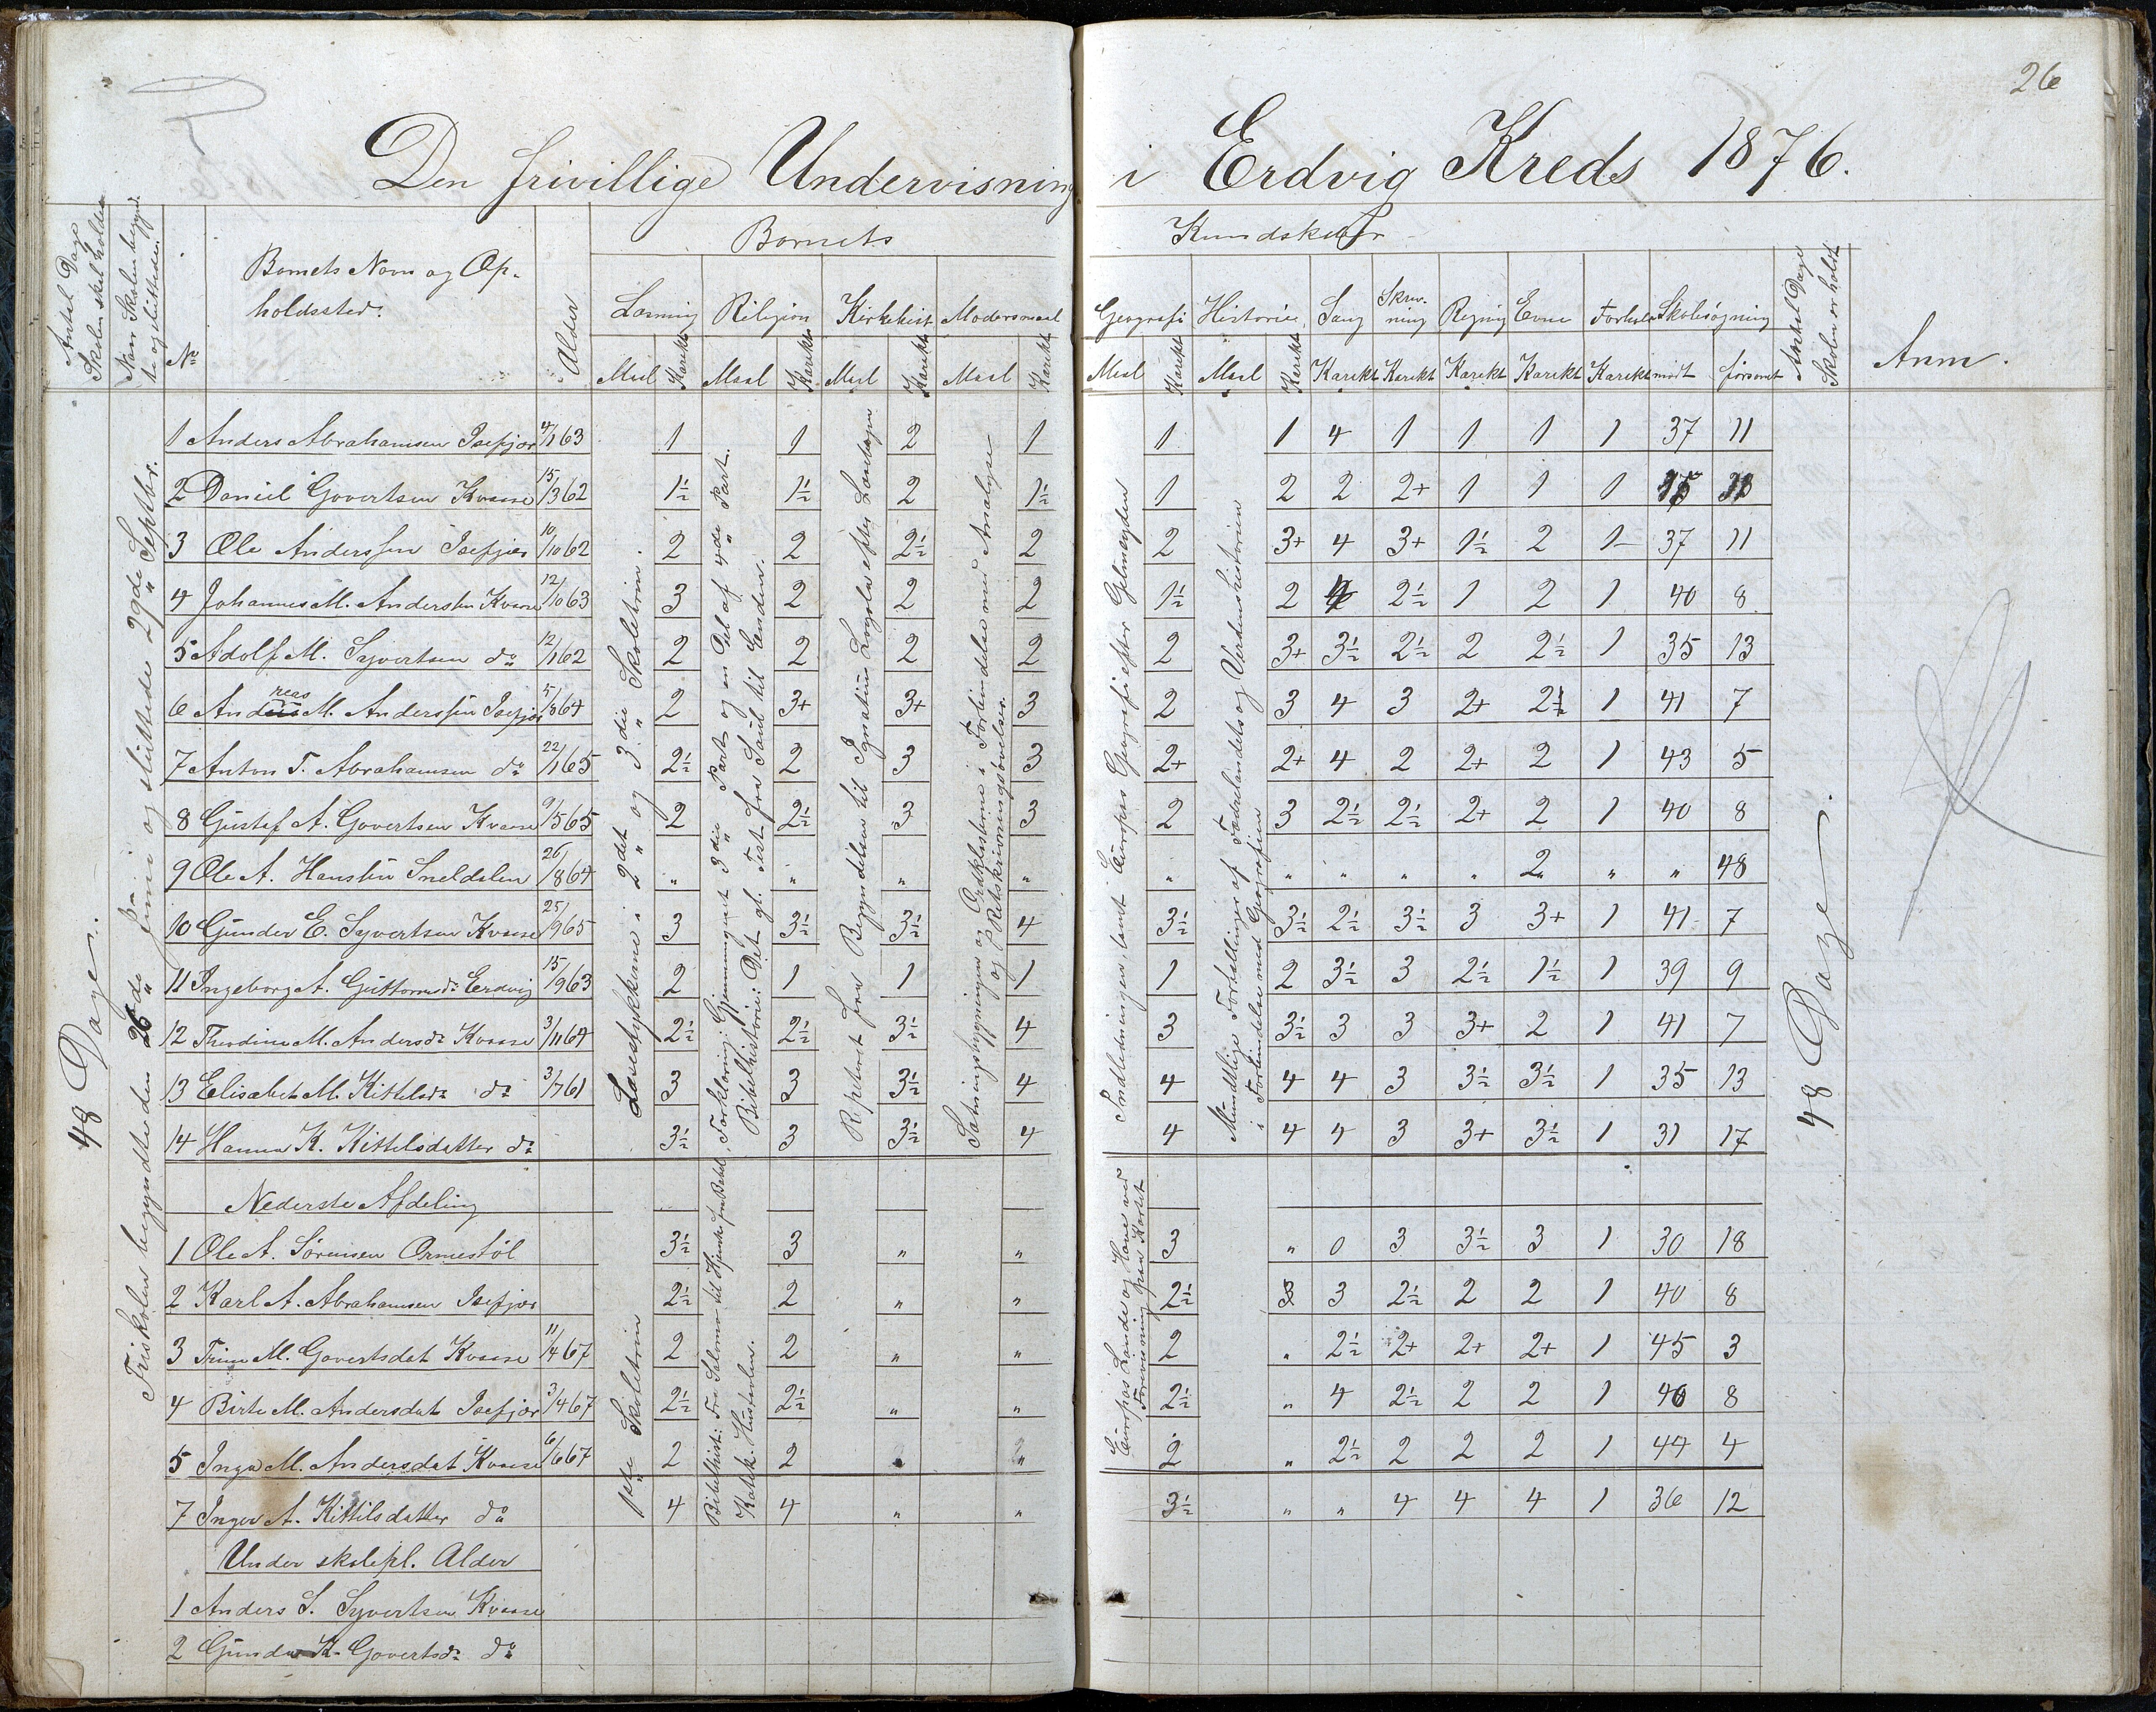 26
Den frivillige Undervisning i Erdvig Kreds 1876.
Antal Dage Skolen skal holdes
Naar Skolen begyndte og sluttede.
No
Barnets Navn og Opholdssted.
Alder
Barnets Kundskaber
Læsning Religion Kirkehist Modersmaal Geografi Historie Sang Skrivning Regning Evne Forhold Skolesøgning
Maal Karakt Maal Karakt Maal Karakt Maal Karakt Maal Karakt Maal Karakt Karakt Karakt Karakt Karakt Karakt mødt forsømt
Antal Dage Skolen er holdt
Anm.
48 Dage.
Friskolen begyndte den 26de Juni og sluttede 29de Septbr.
Læsestykkerne i 2det og 3die Skoletrin.
Forklaring: Gjennemgaaet 3die Part og en Del af 4de Part.
Bibelhistorie: Det gl. Test. fra Saul til Enden.
Repeteret fra Begyndelsen til Ignatius Loyola efter
Sætningsbygningen og Ordklasserne i Forbindelse med Analyse
og Retskrivningsøvelser.
Indledningen, samt Europas Geografi efter
Mundtlige Fortællinger af Fædrelandets og Verdenshistorien
i Forbindelse med Geografien
48 Dage.
1 Anders Abrahamsen Isefjær 4/1 63 1 1 2 1 1 1 4 1 1 1 1 37 11
2 Daniel Govertsen Kvaase 15/3 62 1½ 1½ 2 1½ 1 2 2 2+ 1 1 1
3 Ole Anderssen Isefjær 10/10 62 2 2 2½ 2 2 3+ 4 3+ 1½ 2 1 37 11
4 Johannes M. Andersen Kvaase 12/10 63 3 2 2 2 1½ 2 4 2½ 1 2 1 40 8
5 Adolf M. Syvertsen do 12/1 62 2 2 2 2 2 3+ 3½ 2½ 2 2½ 1 35 13
6 Andreas M. Anderssen Isefjær 5/8 64 2 3+ 3+ 3 2 3 4 3 2+ 2½ 1 41 7
7 Anton T. Abrahamsen do 22/1 65 2½ 2 3 3 2+ 2+ 4 2 2+ 2 1 43 5
8 Gustaf A. Govertsen Kvaase 9/5 65 2 2½ 3 3 2 3 2½ 2½ 2+ 2 1 40 8
9 Ole A. Hansen Sneldalen 26/8 64 " " " " " " " " " 2 " " 48
10 Gunder E. Syvertsen Kvaase 25/9 65 3 3½ 3½ 4 3½ 3½ 2½ 3½ 3 3+ 1 41 7
11 Ingeborg A. Guttormsdr Erdvig 15/9 63 2 1 1 1 1 2 3½ 3 2½ 1½ 1 39 9
12 Theodine M. Andersdr Kvaase 3/11 64 2½ 2½ 3½ 4 3 3½ 3 3 3+ 2 1 41 7
13 Elisabet M. Kittelsdr do 3/7 61 3 3 3½ 4 4 4 4 3 3½ 3½ 1 35 13
14 Hanna K. Kittelsdatter do 3½ 3 3½ 4 4 4 4 3 3+ 3½ 1 31 17
Nederste Afdeling
1ste Skoletrin
Bibelhist: Fra Salomo til
Katek. Hustavlen.
Europas Lande og Have ved
Forevisning paa Kartet
1 Ole A. Sørensen Ormestøl 3½ 3 " " 3 " 0 3 3½ 3 1 30 18
2 Karl A. Abrahamsen Isefjær 2½ 2 " " 2½ 3 3 2½ 2 2 1 40 8
3 Trine M. Govertsdat Kvaase 11/4 67 2 2 " " 2 " 2½ 2+ 2+ 2+ 1 45 3
4 Birte M. Andersdat Isefjær 3/4 67 2½ 2½ " " 2½ " 4 2½ 2 2 1 40 8
5 Inga M. Andersdat Kvaase 6/6 67 2 2 " " 2 " 2½ 2 2 2 1 44 4
7 Inger A. Kittilsdatter do 4 4 " " 3½ " " 4 4 4 1 36 12
Under skolepl. Alder
1 Anders S. Syvertsen Kvaase
2 Gunda K. Govertsdr do